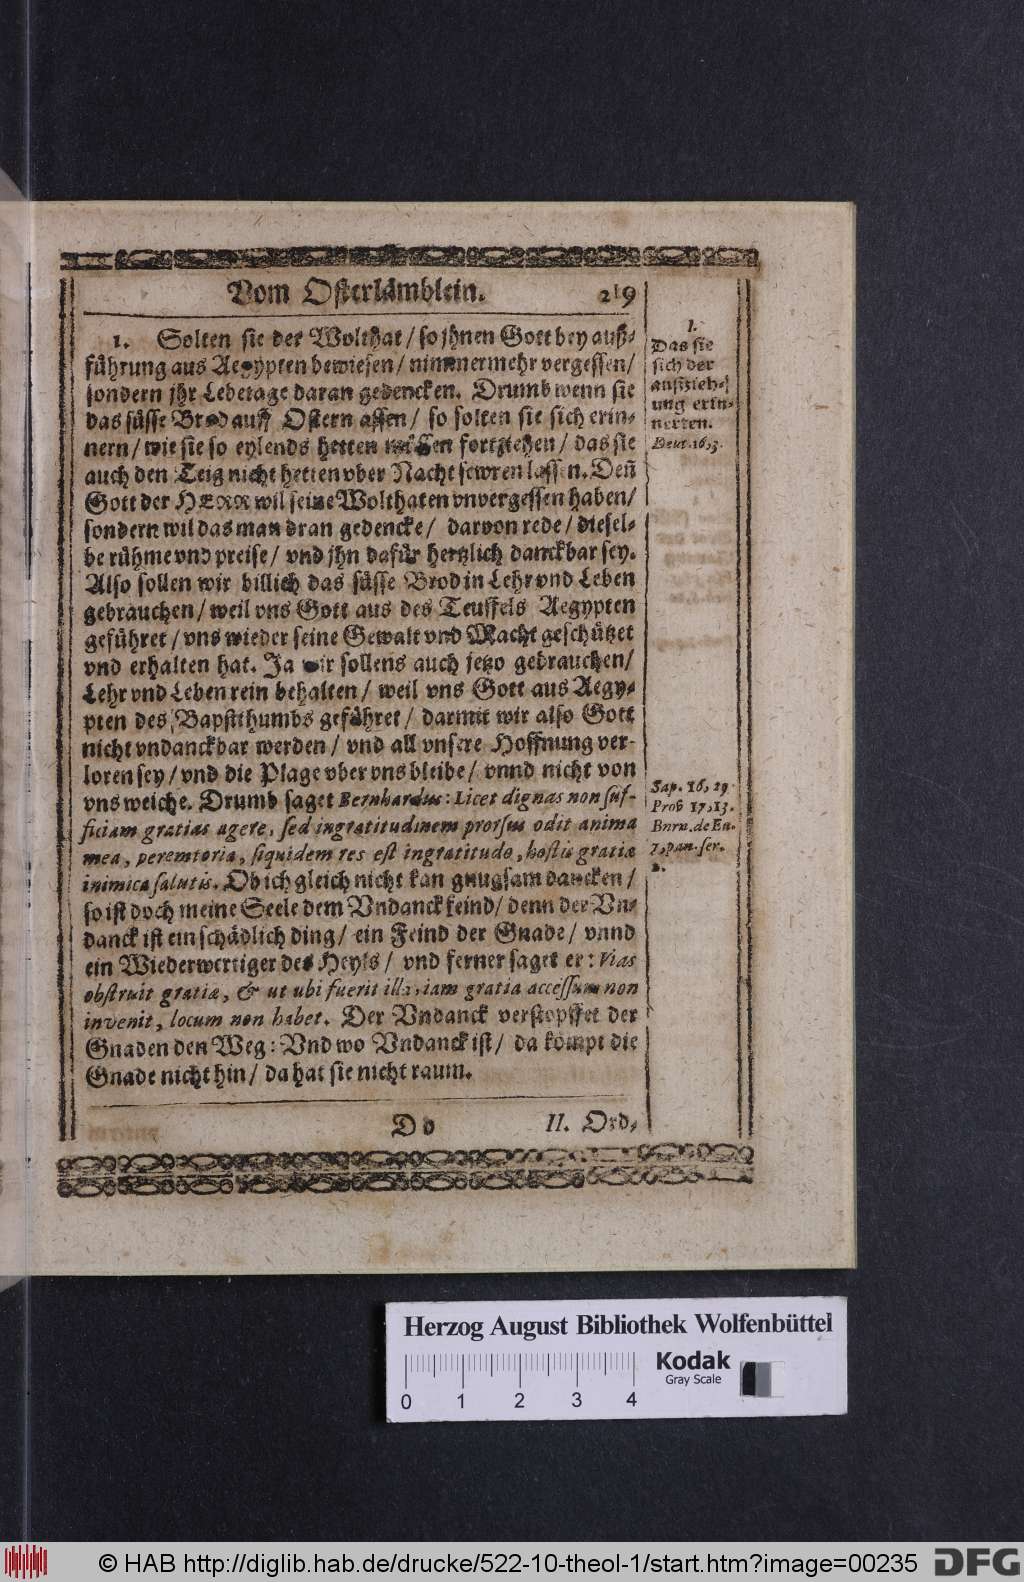 Vom Osterlämblein. 219
1. Solten sie der Wolthat / so jhnen Gott bey auß-
führung aus Aegypten bewiesen / nimmermehr vergessen /
sondern jhr Lebetage daran gedencken. Drumb wenn sie
das süsse Brod auff Ostern assen / so solten sie sich erin-
nern / wie sie so eylends hetten müssen fortziehen / das sie
auch den Teig nicht hetten vber Nacht sewren lassen. Deñ
Gott der HERR wil seine Wolthaten vnvergessen haben /
sondern wil das man dran gedencke / darvon rede / diesel-
be rühme vnd preise / vnd jhn dafür hertzlich danckbar sey.
Also sollen wir billich das süsse Brod in Lehr vnd Leben
gebrauchen / weil vns Gott aus des Teuffels Aegypten
geführet / vns wieder seine Gewalt vnd Macht geschützet
vnd erhalten hat. Ja wir sollens auch jetzo gebrauchen /
Lehr vnd Leben rein behalten / weil vns Gott aus Aegy-
pten des Bapstthumbs geführet / darmit wir also Gott
nicht vndanckbar werden / vnd all vnsere Hoffnung ver-
loren sey / vnd die Plage vber vns bleibe / vnnd nicht von
vns weiche. Drumb saget Bernhardus: Licet dignas non suf-
ficiam gratias agere, sed ingratitudinem prorsus odit anima
mea, peremtoria, siquidem res est ingratitudo, hostis gratiæ
inimica salutis. Ob ich gleich nicht kan gnugsam dancken /
so ist doch meine Seele dem Vndanck feind / denn der Vn-
danck ist ein schädlich ding / ein Feind der Gnade / vnnd
ein Wiederwertiger des Heyls / vnd ferner saget er: Vias
obstruit gratiæ, & ut ubi fuerit illa, iam gratia accessum non
invenit, locum non habet. Der Vndanck verstopffet der
Gnaden den Weg: Vnd wo Vndanck ist / da kömpt die
Gnade nicht hin / da hat sie nicht raum.
D d II. Ord-
1.
Das sie
sich der
außzieh-
ung erin-
nerten.
Deut. 16, 3.
Sap. 16, 29
Prob 17, 13.
Bnrn. de Eu.
7. pan. ser.
2.
Herzog August Bibliothek Wolfenbüttel
Kodak
Gray Scale
0 1 2 3 4
© HAB http://diglib.hab.de/drucke/522-10-theol-1/start.htm?image=00235
DFG